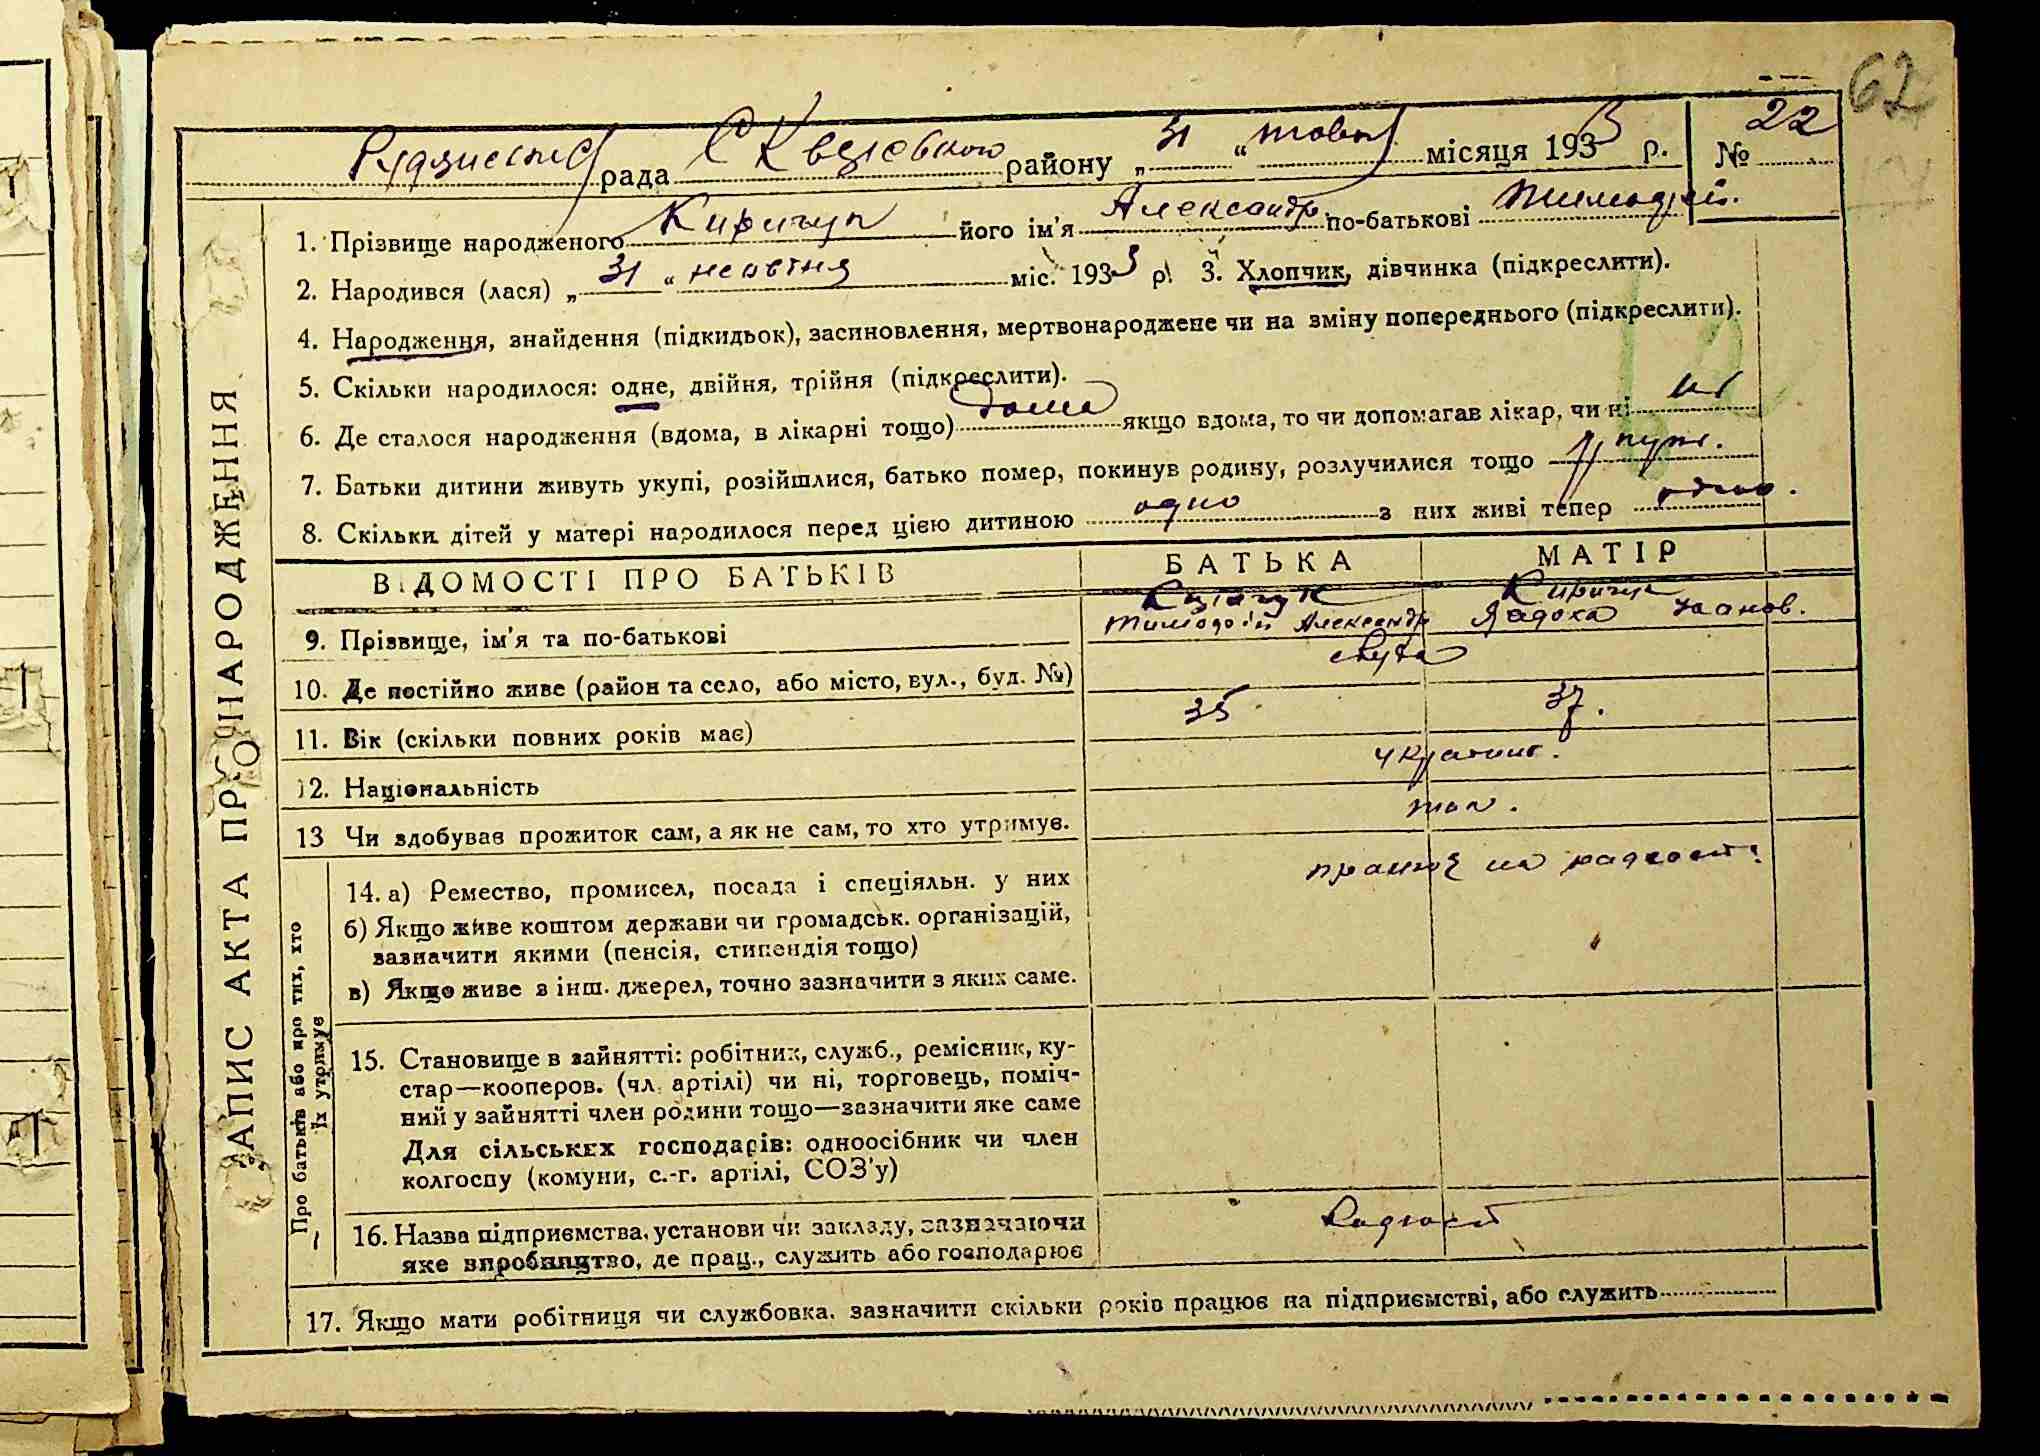 62
рада Сквирського району „ 31 “ жовт місяця 1933 р. № 22
1. Прізвище народженого Киричук його ім'я Александр по-батькові Тимофей.
2. Народився (лася) „ 31 “ міс. 1933 р. 3. Хлопчик, дівчинка (підкреслити).
4. Народження, знайдення (підкидьок), засиновлення, мертвонароджене чи на зміну попереднього (підкреслити).
5. Скільки народилося: одне, двійня, трійня (підкреслити).
6. Де сталося народження (вдома, в лікарні тощо) дома якщо вдома, то чи допомагав лікар, чи ні ні
7. Батьки дитини живуть укупі, розійшлися, батько помер, покинув родину, розлучилися тощо
8. Скільки дітей у матері народилося перед цією дитиною одно з них живі тепер одно.
ЗАПИС АКТА ПРО НАРОДЖЕННЯ
ВІДОМОСТІ ПРО БАТЬКІВ БАТЬКА МАТІР
9. Прізвище, ім'я та по-батькові Киричук Тимофій Александр Киричук Явдоха Іванов.
10. Де постійно живе (район та село, або місто, вул., буд. №)
11. Вік (скільки повних років має) 35 37.
12. Національність україн.
13 Чи здобував прожиток сам, а як не сам, то хто утримує.
Про батьків або про тих, хто їх утримує
14. а) Ремество, промисел, посада і спеціяльн. у них працює на радгоспі
б) Якщо живе коштом держави чи громадськ. організацій,
зазначити якими (пенсія, стипендія тощо)
в) Якщо живе з інш. джерел, точно зазначити з яких саме.
15. Становище в зайнятті: робітник, служб., ремісник, ку-
стар—кооперов. (чл. артілі) чи ні, торговець, поміч-
ний у зайнятті член родини тощо—зазначити яке саме
Для сільських господарів: одноосібник чи член
колгоспу (комуни, с.-г. артілі, СОЗ'у)
16. Назва підприємства, установи чи закладу, зазначаючи Радгосп
яке виробництво, де прац., служить або господарює
17. Якщо мати робітниця чи службовка, зазначити скільки років працює на підприємстві, або служить